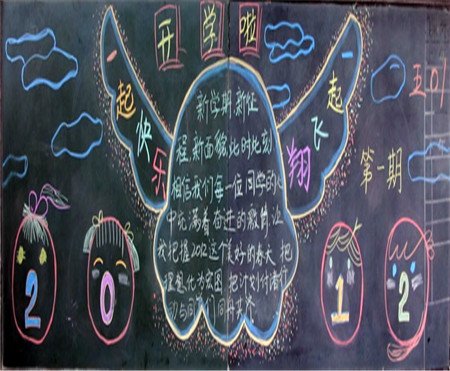 开学啦
一起快乐
一起飞翔
五(7)
第一期
新学期新征
程,新面貌,此时此刻
相信我们每一位同学的心
中充满着奋进的激情,让
我把握2012这个美好的春天,把
理想化为宏图,把计划付诸行
动与同
2 0 1 2